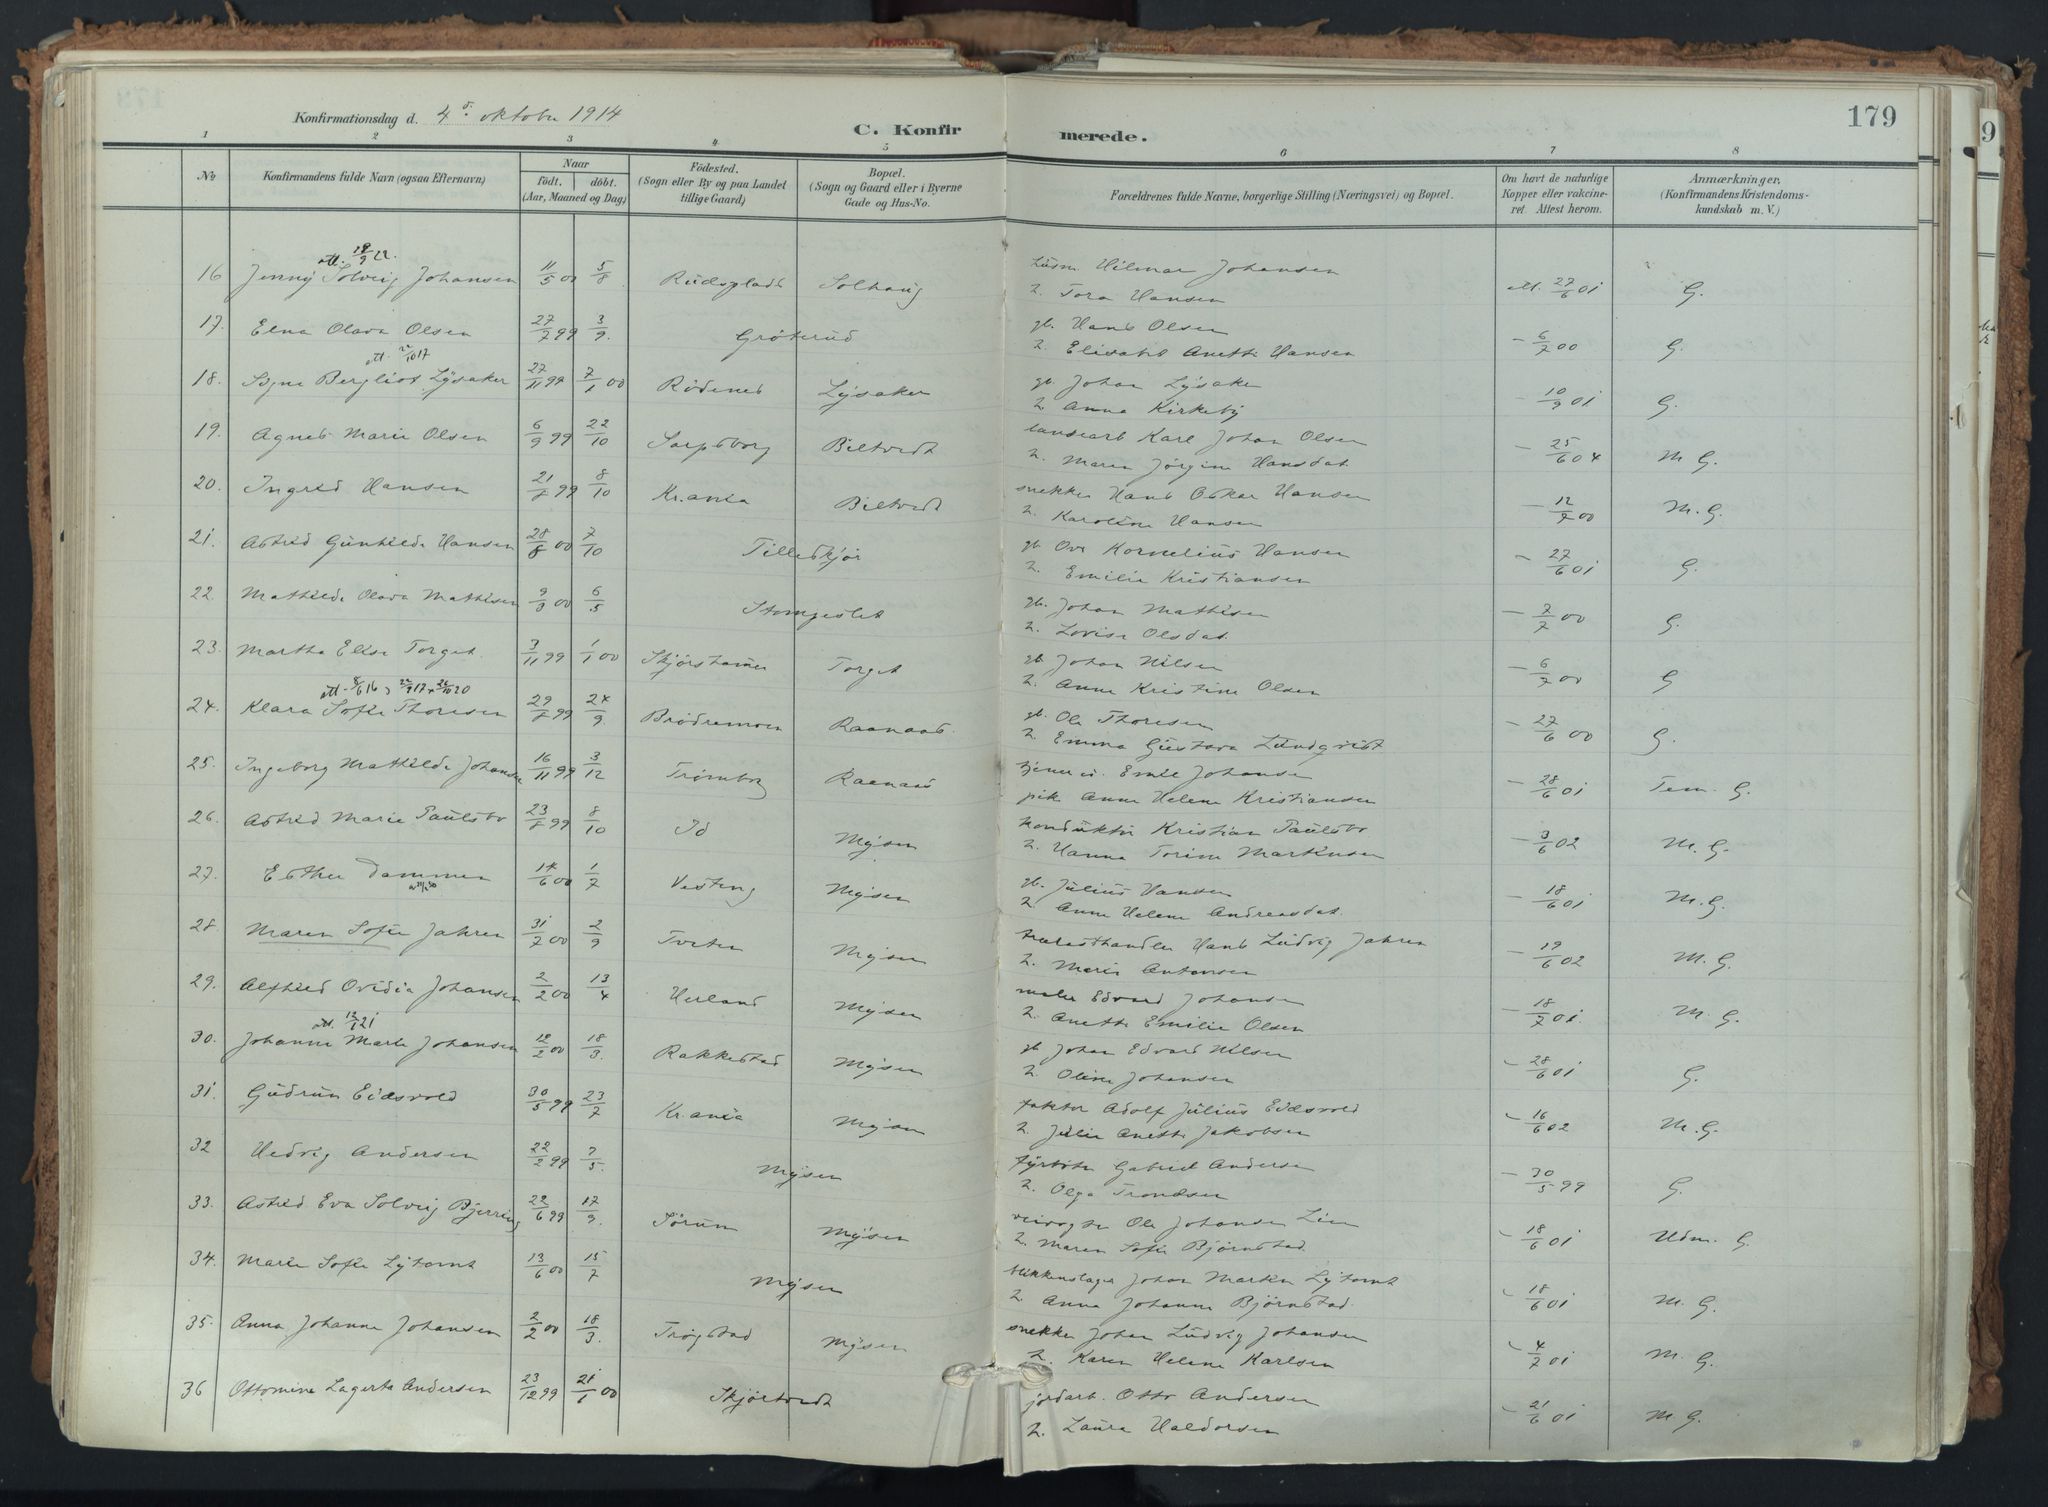 Konfirmationsdag d. 4de oktober 1914
C. Konfirmerede.
179
1 2 3 4 5 6 7 8
No
Konfirmandens fulde Navn (ogsaa Efternavn)
Naar
födt. döbt.
(Aar, Maaned og Dag)
Födested.
(Sogn eller By og paa Landet
tillige Gaard)
Bopæl.
(Sogn og Gaard eller i Byerne
Gade og Hus-No.
Forældrenes fulde Navne, borgerlige Stilling (Næringsvei) og Bopæl.
Om havt de naturlige
Kopper eller vakcine-
ret Attest herom.
Anmærkninger,
(Konfirmandens Kristendoms-
kundskab m. V.)
att. 19/9 22.
16 Jenny Solveig Johansen 11/5 00 5/8 Rudsplads Solhaug Lusm Hilmar Johansen att. 27/6 01 G.
2. Tora Hansen
17. Elna Olava Olsen 27/7 99 3/9. Gröterud gb. Hans Olsen - 6/7 00 G.
2. Elisabet Anette Hansen
att. 2/10 17
18. Signe Bergliot Lysaker 27/11 99 7/1 00 Rödenes Lysaker gb. Johan Lysaker - 10/9 01 G.
2. Anna Kirkeby
19. Agnes Marie Olsen 6/9 99 22/10 Sarpsborg Biltvedt Karl Johan Olsen - 25/6 04 M G.
2. Maren Jörgine Hansdat.
20. Ingrid Hansen 21/7 99 8/10 Kr.ania Biltvedt snekker Hans Oskar Hansen - 12/7 00 M. G.
2. Karoline Hansen
21. Astrid Gunhilde Hansen 28/8 00 7/10 Tilleskjör gb. Ove Kornelius Hansen - 27/6 01 G.
2. Emilie Kristiansen
22. Mathilde Olava Mathisen 9/3 00 6/5 Stomgeslet gb. Johan Mathisen - 7/7 00 G.
2. Lovise Olsdat.
23. Martha Elise Torget. 3/11 99 1/1 00 Skjörshamer Torget gb. Johan Nilsen - 6/7 00 G
2. Anne Kristine Olsen
att. 8/6 16, 22/9 17 + 26/10 20
24. Klara Sofie Thoresen 29/7 99 24/9. Brödremoen Raanaas. gb. Ole Thoresen - 27/6 00 G.
2. Emma Gustava Lundqvist
25. Ingeborg Mathilde Johansen 16/11 99 3/12 Trömborg Raanaas Emil Johansen - 28/6 01 Tem. G.
pike Anne Helene Kristiansen
26. Astrid Marie Paulsbo 23/7 99 8/10 Id Mysen konduktör Kristian Paulsbo - 3/6 02 M. G.
2. Hanna Torine Martinsen
27. Esther Dammen 14/6 00 1/7 Vesteng Mysen gb. Julius Hansen - 18/6 01 M. G.
2. Anne Helene Andreasdat.
28. Maren Sofie Jahren 31/7 00 2/9 Tveten Mysen trælasthandler Hans Ludvig Jahren - 19/6 02 M. G.
2. Marie Antonsen
29. Alfhild Ovidia Johansen 2/2 00 13/4 Herland Mysen maler Edvard Johansen - 18/7 01. M. G.
2. Anette Emilie Olsen
att. 12/1 21
30. Johanne Marie Johansen 12/2 00 18/3. Rakkestad Mysen gb Johan Edvard Nilsen - 28/6 01 G.
2. Oline Johansen
31. Gudrun Eidsvold 30/5 99 23/7 Kr.ania Mysen faktor Adolf Julius Eidsvold - 16/6 02 M. G.
2. Julie Anette Jakobsen
32 Hedvig Andersen 22/2 99 7/5. Mysen fyrböter Gabriel Andersen - 30/5 99 G.
2. Olga Trondsen
33. Astrid Eva Solveig Bjerring 22/6 99 17/9. Sörum Mysen Ole Johansen Lien - 18/6 01 Udm. G.
2. Maren Sofie Björnstad.
34. Marie Sofie Lytomt 13/6 00 15/7 Mysen blikkenslager Johan Martin Lytomt - 18/6 01 M. G.
2. Anna Johanne Björnstad.
35. Anna Johanne Johansen 2/2 00 18/3. Trögstad Mysen snekker Johan Ludvig Johansen - 4/7 01 M. G.
2. Karen Helene Karlsen
36 Ottomine Lagerta Andersen 23/12 99 21/1 00 Skjörtvedt jordarb. Otto Andersen - 21/6 01 M G.
2. Laura Haldorsen